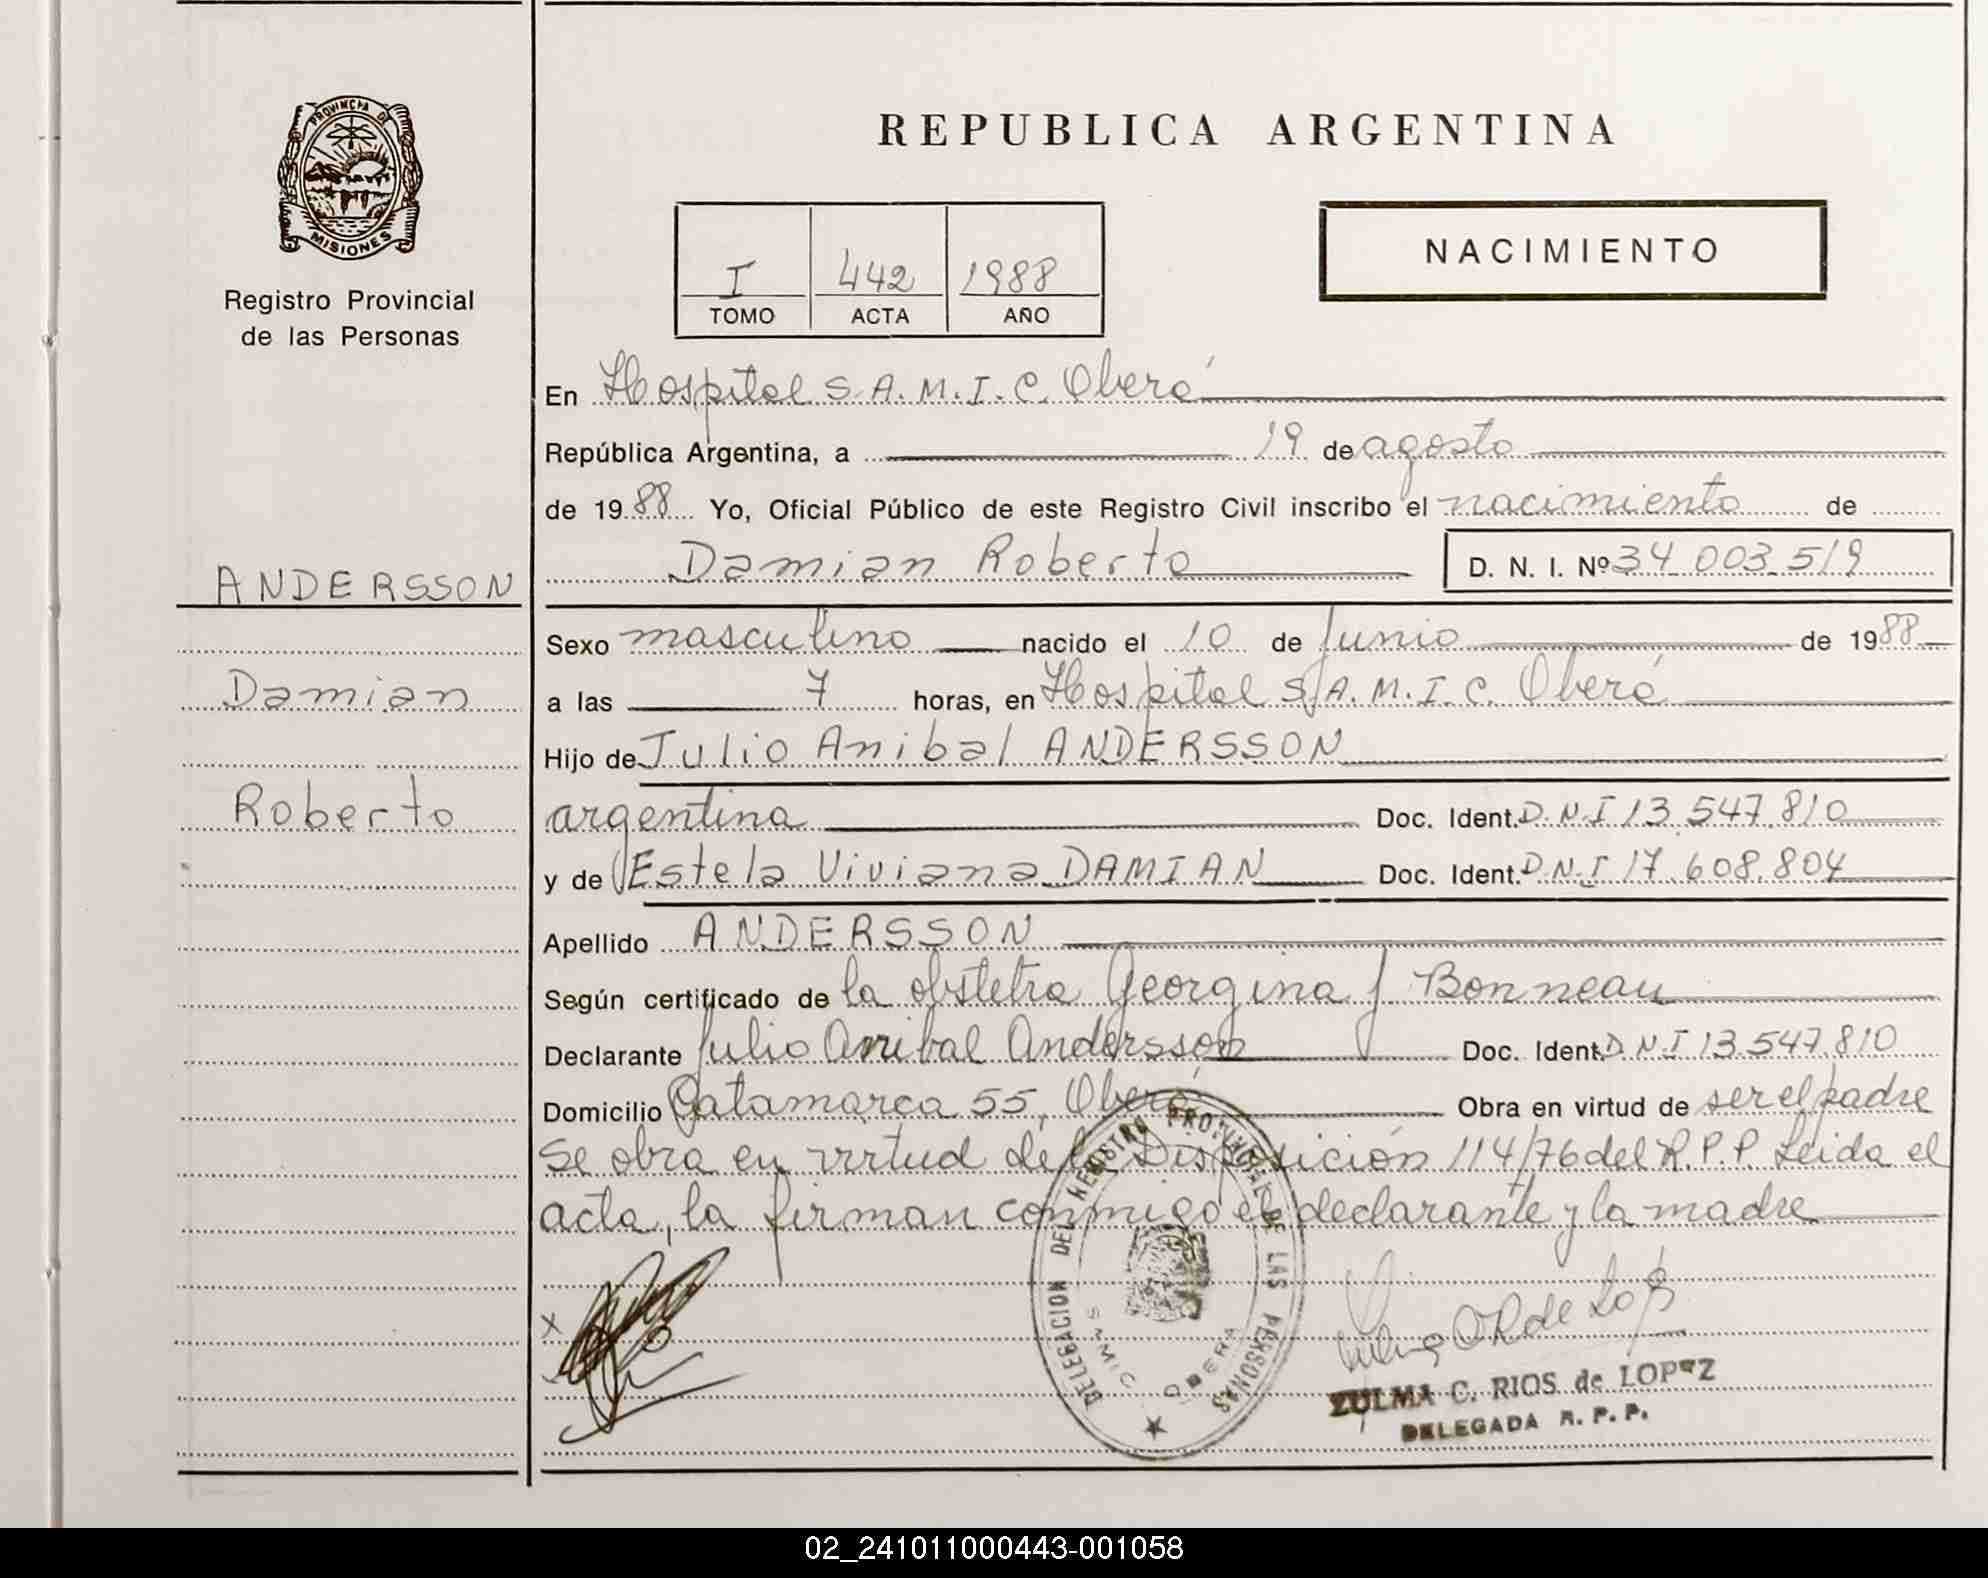 PROVINCIA DE
MISIONES
Registro Provincial
de las Personas
ANDERSSON
Damian
Roberto
REPUBLICA ARGENTINA
I 442 1988
TOMO ACTA AÑO
NACIMIENTO
En Hospital S.A.M.I.C. Oberá
República Argentina, a 19 de agosto
de 1988 Yo, Oficial Público de este Registro Civil inscribo el nacimiento de
Damian Roberto D. N. I. Nº 34 003 519
Sexo masculino nacido el 10 de Junio de 1988
a las 7 horas, en Hospital S.A.M.I.C. Oberá
Hijo de Julio Anibal ANDERSSON
argentina Doc. Ident. D.N.I 13.547.810
y de Estela Viviana DAMIAN Doc. Ident. D.N.I 17.608.804
Apellido ANDERSSON
Según certificado de la obstetra Georgina J Bonneau
Declarante Julio Anibal Andersson Doc. Ident. D.N.I 13.547.810
Domicilio Catamarca 55, Oberá Obra en virtud de ser el padre
Se obra en virtud de la Disposición 114/76 del R.P.P. Leida el
acta, la firman conmigo el declarante y la madre
X
DELEGACION DEL REGISTRO PROVINCIAL DE LAS PERSONAS
SAMIC OBERA
ZULMA C. RIOS de LOPEZ
DELEGADA R. P. P.
02_241011000443-001058